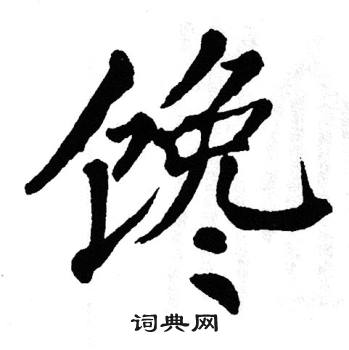 馋
词典网